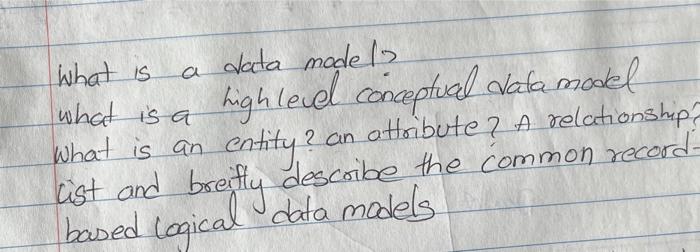 What is a data model?
what is a high level conceptual data model
What is an entity? an attribute? A relationship?
List and breifly describe the common record-
based logical data models